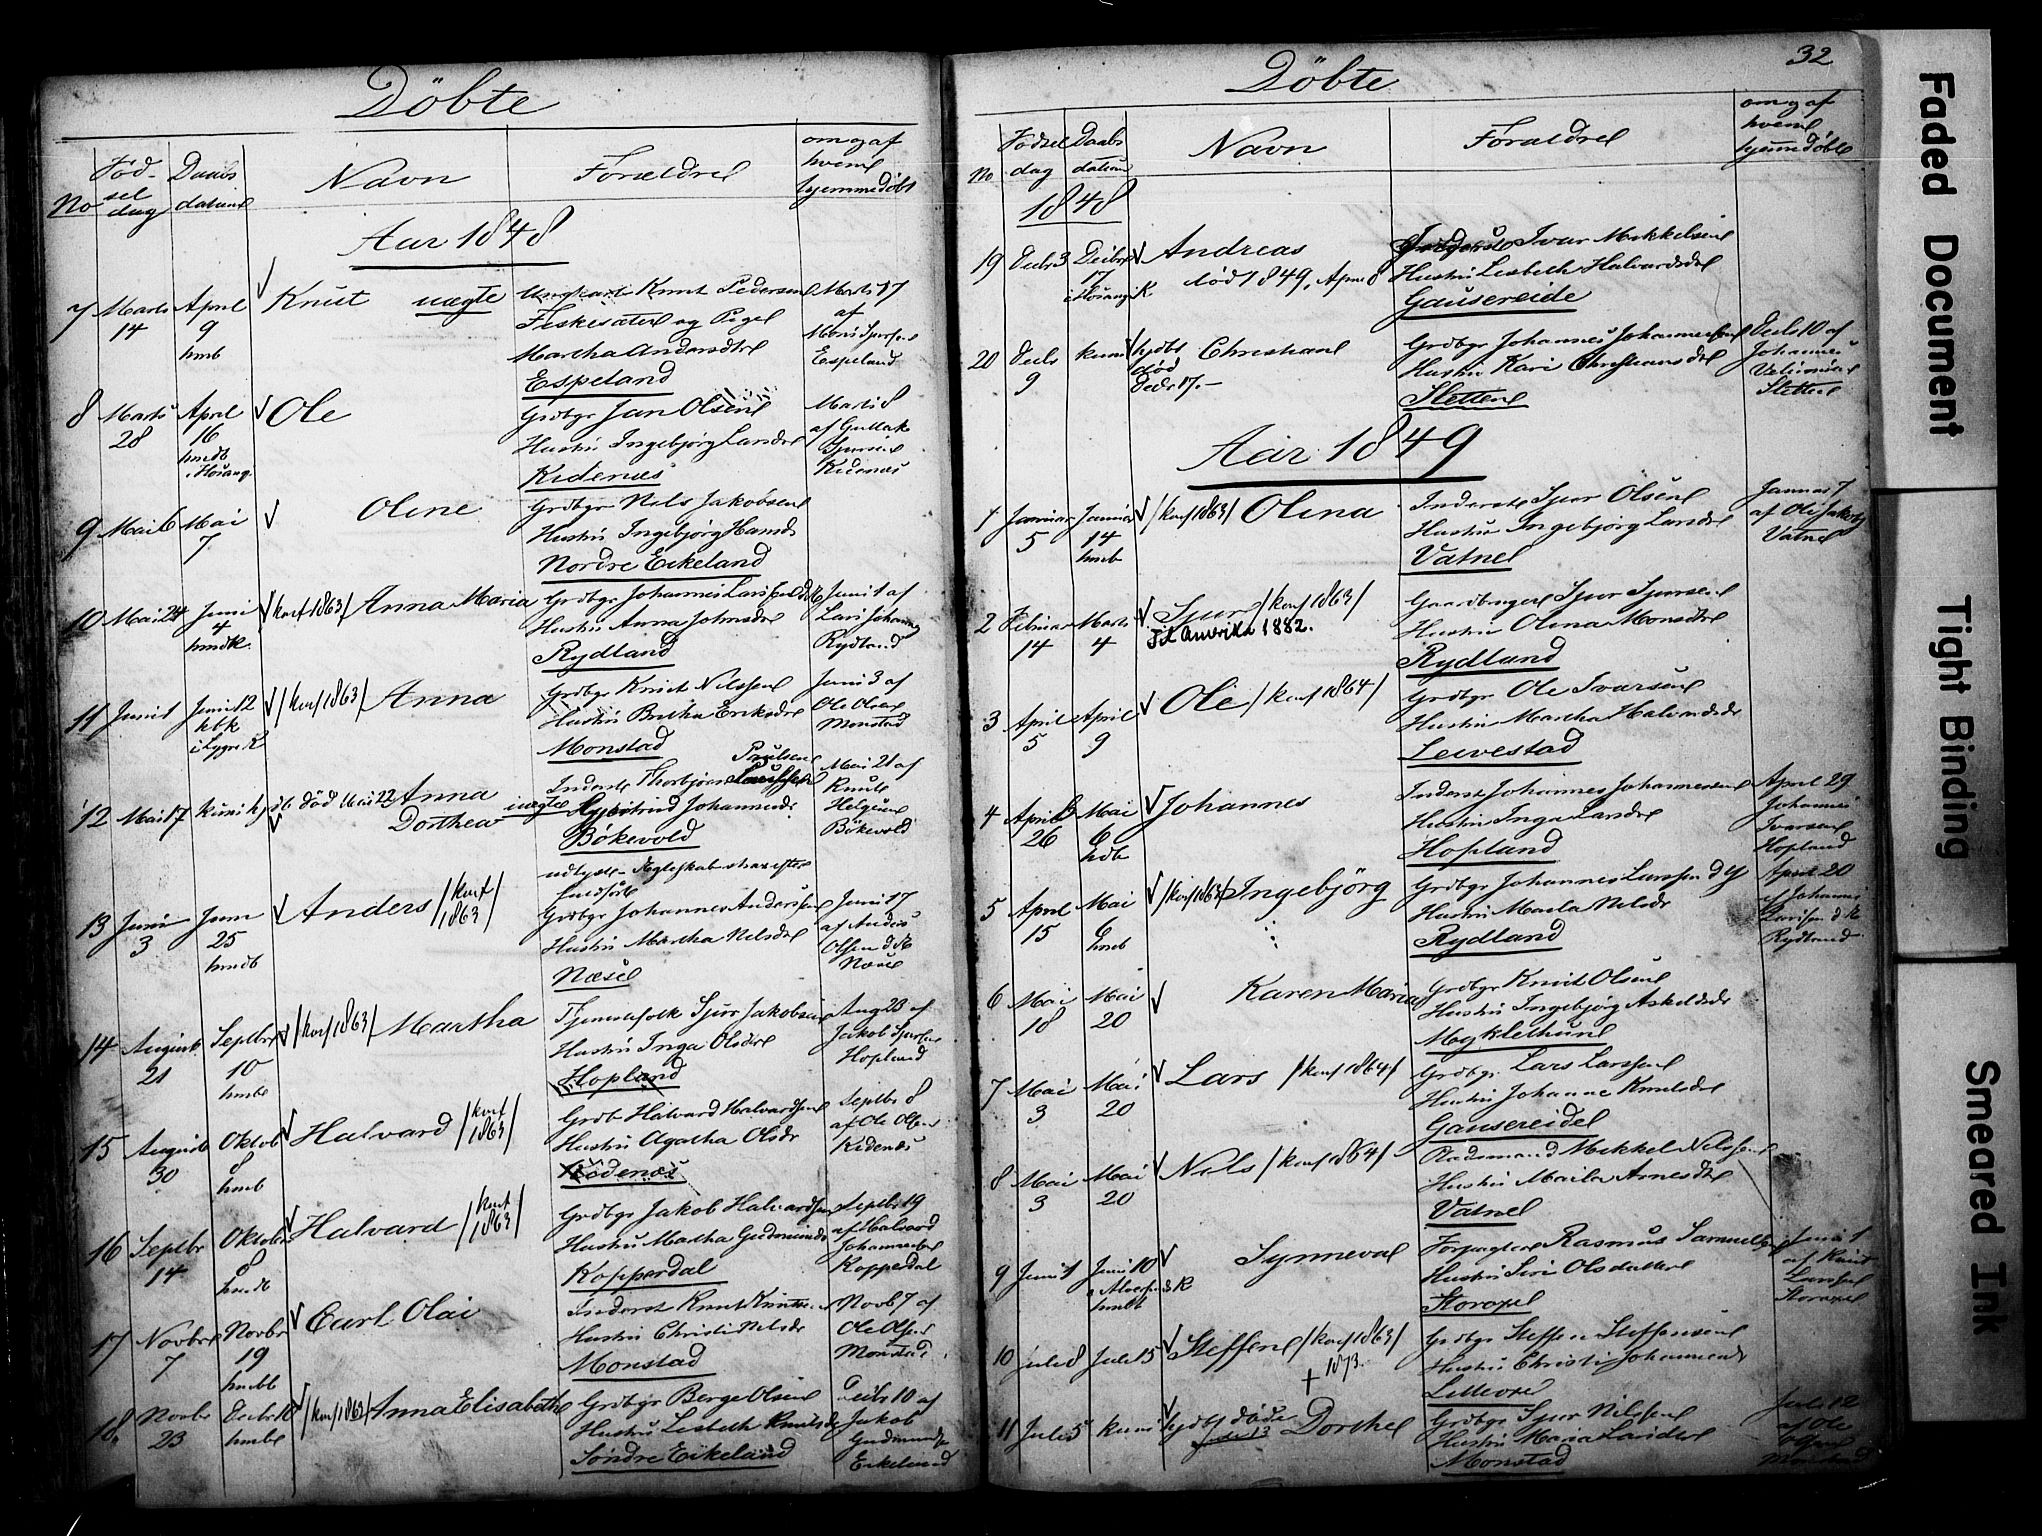 Döbte
No
Fød-
sel
dag
Daabs
datum
Navn
Forældre
om og af
hvem
hjemmedöbt
Aar 1848
7 Marts 14 April 9 hmb
Knut uægte
Ungkarl Knut Pedersen
Fiskesæter og Pige
Martha Andersdtr
Espeland
Marts 17
af
Mons Sjursen
Espeland
8 Marts 28 April 16 hmdb i Hosang.
Ole
Grdbgr Jan Olsen
Hustru Ingebjørg Larsdtr
Kidenæs
Marts 8
af Gullak
Sjursen
Kidenæs
9 Mai 6 Mai 7
Oline
Grdbgr Nils Jakobsen
Hustru Ingebjørg Hansdr
Nordre Eikeland
10 Mai 24 Juni 4 hmdk.
/konf 1863/ Anna Maria
Grdbgr Johannes Larssen
Hustru Anna Johnsdtr
Rydland
Juni 1 af
Lars Johannes
Rydland
11 Juni 1 Juni 12 kbk i Lygre K
/konf 1863/ Anna
Grdbgr Knut Nilssen
Hustru Britha Eriksdtr
Monstad
Juni 3 af
Ole Olsen
Monstad
12 Mai 17 kun hjdb død Mai 22
Anna
Dorthea
uægte
Paulsen
Inderst Thorbjørn
Johannesdr
Bökevold
Mai 21 af
Knut
Helgesen
Bökevold
13 Juni 3 Juni 25 hmdb
Anders /konf
1863/
Grdbgr Johannes Anderssen
Hustru Martha Nilsdtr
Næse
Juni 17
af Anders
Olssen d Æ
Næse
14 August 21 Septbr 10 hmbt
/konf 1863/ Martha
Tjenestefolk Sjur Jakobsen
Hustru Inga Olsdtr
Hopland
Aug 23 af
Jakob Sjursen
Hopland
15 August 30 Oktob 8 hmb
Halvard /konf
1863/
Grdb Halvard Halvardsen
Hustru Agatha Olsdr
Kidenæs
Septbr 8
af Ole Olsen
Kidenæs
16 Septbr 14 Oktobr 8 hmdb
Halvard /konf
1863/
Grdbgr Jakob Halvardsen
Hustru Martha Gudmundsdr
Kopperdal
Septbr 19
af Halvard
Johannessen
Kopperdal
17 Novbr 7 Novbr 19 hmbt
Carl Olai
Inderst Knut Knutsen
Hustru Christi Nilsdr
Monstad
Novb 7 af
Ole Olsen
Monstad
18. Novbr 23 Decbr 10 hmbt
/konf 1863/ Anna Elisabeth
Grdbgr Berge Olsen
Hustru Lisbeth Knutsdr
Söndre Eikeland
Decbr 10 af
Jakob
Gudmunds
Eikeland
32
Döbte
No
Födsel
dag
Daabs
datum
Navn
Forældre
om og af
hvem
hjemmedöbt
1848
19 Decbr 3 Decbr 17 i Hosang K.
Andreas
död 1849, April 8
Ivar Mikkelsen
Hustru Lisbeth Halvardsdtr
Gausereide
20 Decbr 9 kun hjdbt
död
Decbr 17.-
Christian
Grdbgr Johannes Johannessen
Hustru Kari Christiansdtr
Sletten
Decbr 10 af
Johannes
Sletten
Aar 1849
1 Januar 5 Januar 14 hmb
/konf 1863/ Olina
Inderste Sjur Olsen
Hustru Ingebjörg Larsdtr
Vatne
Januar 7
af Ole Jakobs
Vatne
2 Februar 14 Marts 4
Sjur /konf 1863/
Til Amerika 1882.
Gaardbruger Sjur Sjursen
Hustru Olina Monsdtr
Rydland
3 April 5 April 9
Ole /konf 1864/
Grdbgr Ole Ivarsen
Hustru Martha Halvardsdr
Leivestad
4 April 26 Mai 6 hdb
Johannes
Inderst Johannes Johannessen
Hustru Inga Larsdtr
Hopland
April 29
Johannes
Ivarsen
Hopland
5 April 15 Mai 6 hmb
/konf 1863/ Ingebjörg
Grdbgr Johannes Larssen d y
Hustru Marta Nilsdr
Rydland
April 20
af Johannes
Larssen d Æ
Rydland
6 Mai 18 Mai 20
Karen Maria
Grdbgr Knut Olsen
Hustru Ingebjörg Askildsdr
Myklethun
7 Mai 3 Mai 20
Lars /konf 1864/
Grdbgr Lars Larssen
Hustru Johanne Knutsdtr
Gausereide
8 Mai 3 Mai 20
Nils /konf 1864/
Pladsmand Mikkel Nilssen
Hustru Marta Arnesdtr
Vatne
9 Juni 1 Juni 10 hmdt
Synneva
Forpagter Rasmus Samuelsen
Hustru Siri Olsdatter
Storoxe
Juni 1
af Knut
Larssen
Storoxe
10 Juli 8 Juli 15
Steffen /konf 1863/
+ 1873.
Grdbgr Steffen Steffensen
Hustru Christi Johannesdr
Lilleoxe
11 Juli 5 kun hjdbt döde
Juli 13
Dorthe
Grdbgr Sjur Nilssen
Hustru Maria Larsdtr
Monstad
Juli 12
af Ole
Monstad
Faded Document
Tight Binding
Smeared Ink